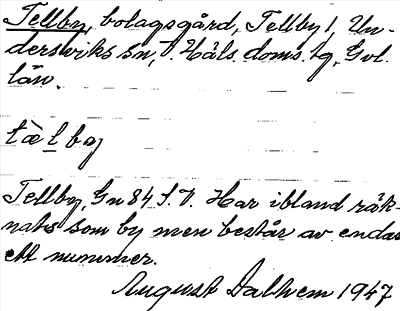 Tellby, bolagsgård, Tellby 1, Un-
dersviks sn, V. Häls. doms. lg, Gvl.
län.
tæ̀lby
Tellby, Gn 84 S.V. Har ibland räk-
nats som by men består av endast
ett nummer.
August Dalhem 1947